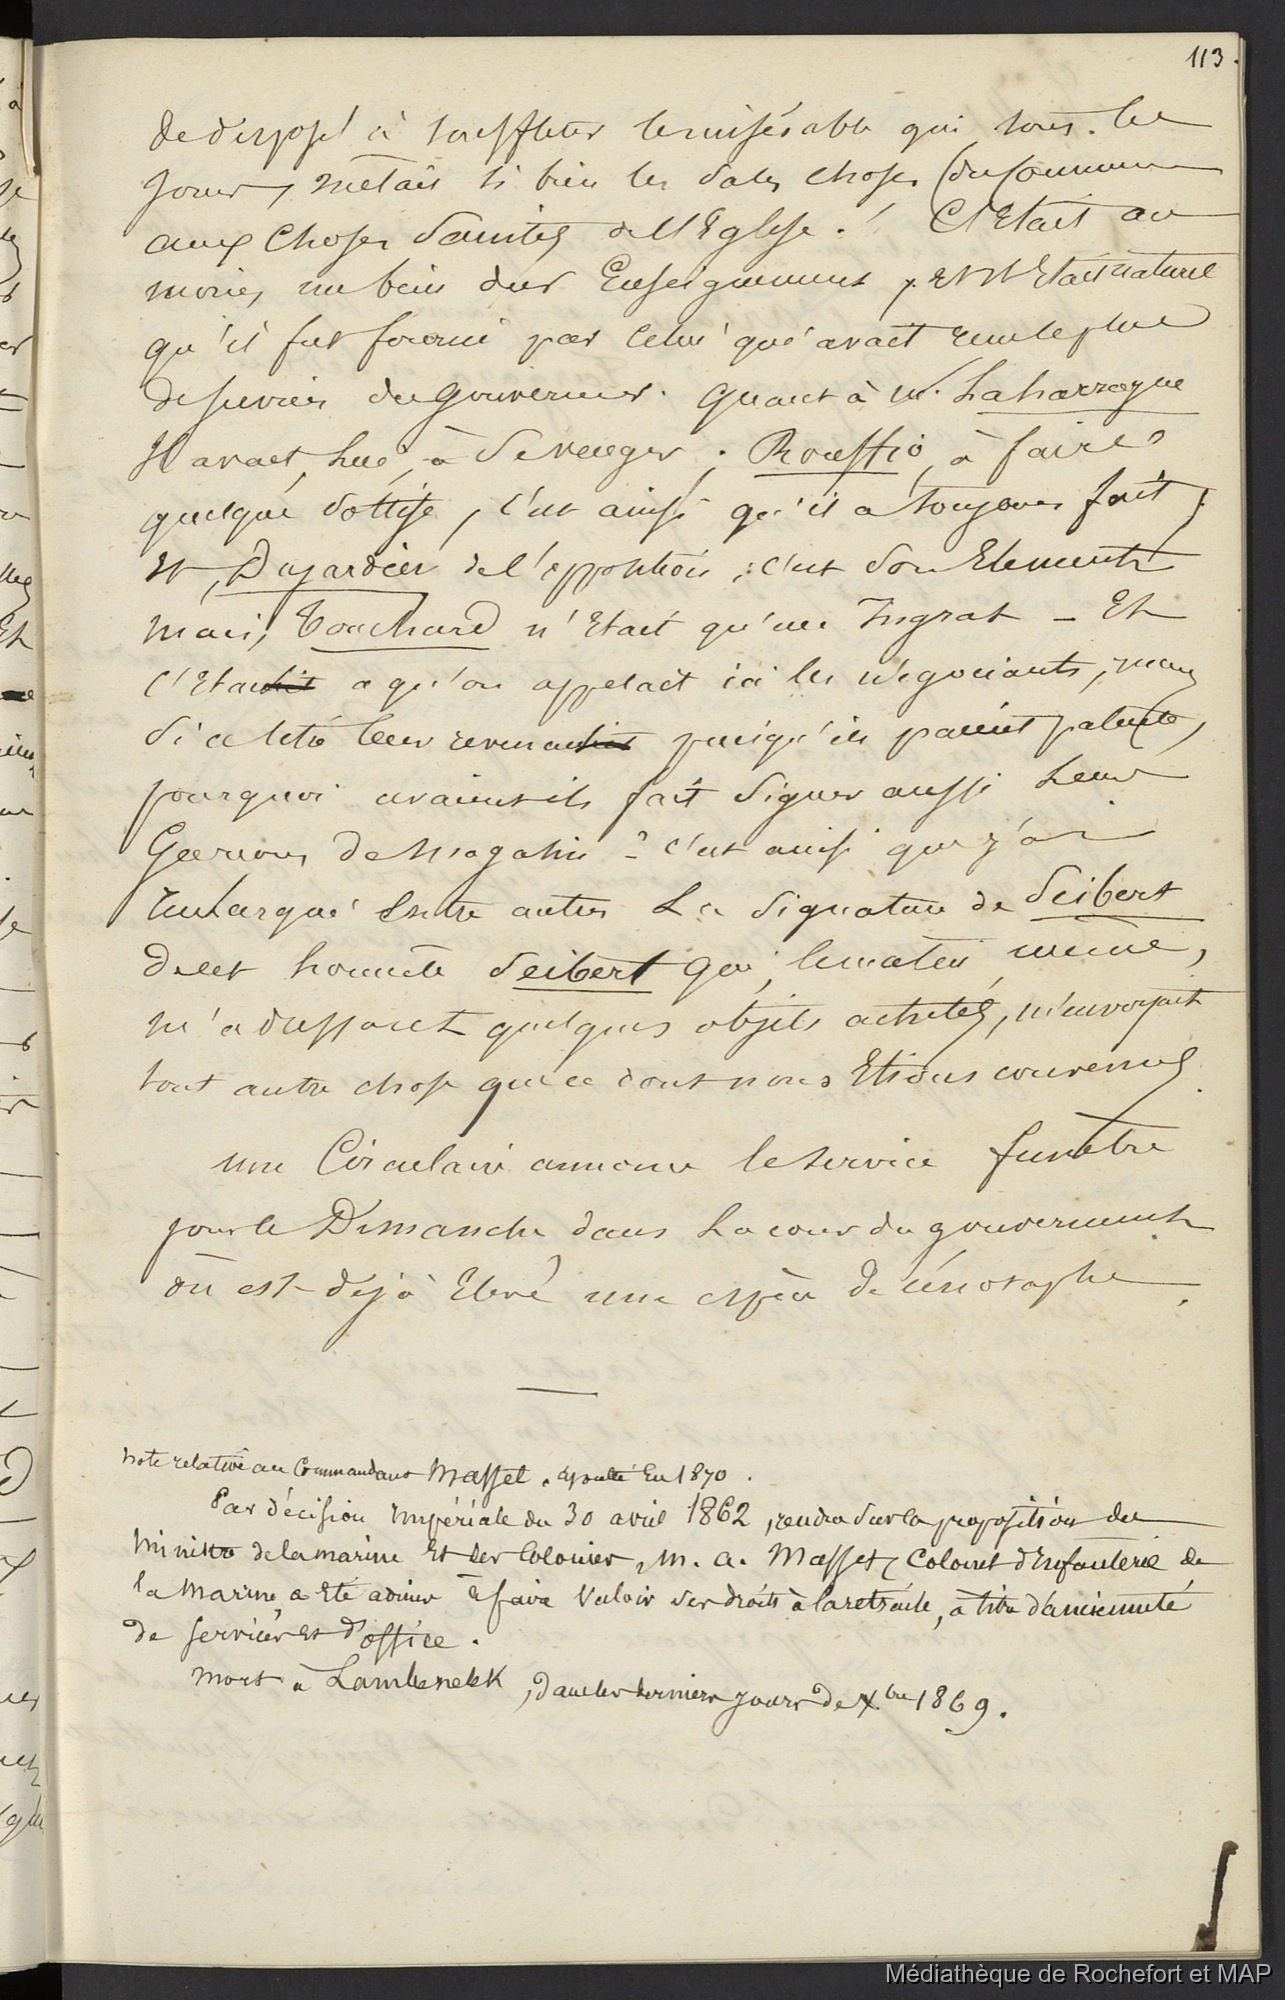 113.
de disposé à souffleter le misérable qui tous les
jours, mêlait si bien les sales choses (du Commun
aux Choses Saintes de l'Eglise ! C'Etait au
moins un bien dur Enseignement, et il Etait naturel
qu'il fut fourni par Celui qui avait rendu le plus
de services du gouverneur. quant à M. Laharrague
Il avait, lui, à se venger ; Rouffio, à faire
quelque sottise, c'est ainsi qu'il a toujours fait ;
et, Dujardin de l'opposition ; c'est son Element
mais, Touchard n'Etait qu'un Ingrat - Et
c'Etait a qu'on appelait ici les négociants, mais
si a titre leur revenait puisqu'ils paient patente,
pourquoi avaient-ils fait signer aussi Leurs
Garçons de Magasin ? c'est ainsi que j'ai
remarqué Entre autres La Signature de Seibert
de cet honnête Seibert qui, le matin même,
m'adressant quelques objets achetés, m'envoyait
tout autre chose que ce dont nous Etions convenus.
une Circulaire annonce le service funèbre
pour le Dimanche dans La cour du gouvernement
où est déjà Elevé une espèce de cénotaphe.
Note relative au Commandant Masset. ajoutée En 1870.
Par décision Impériale du 30 avril 1862, rendue sur la proposition du
Ministre de la marine et des Colonies, M. A. Masset, Colonel d'Infanterie de
la Marine a Eté admis à faire Valoir ses droits à la retraite, à titre d'ancienneté
de services et d'office.
Mort à Lambesellek, dans les derniers jours de Xbre 1869.
Médiathèque de Rochefort et MAP